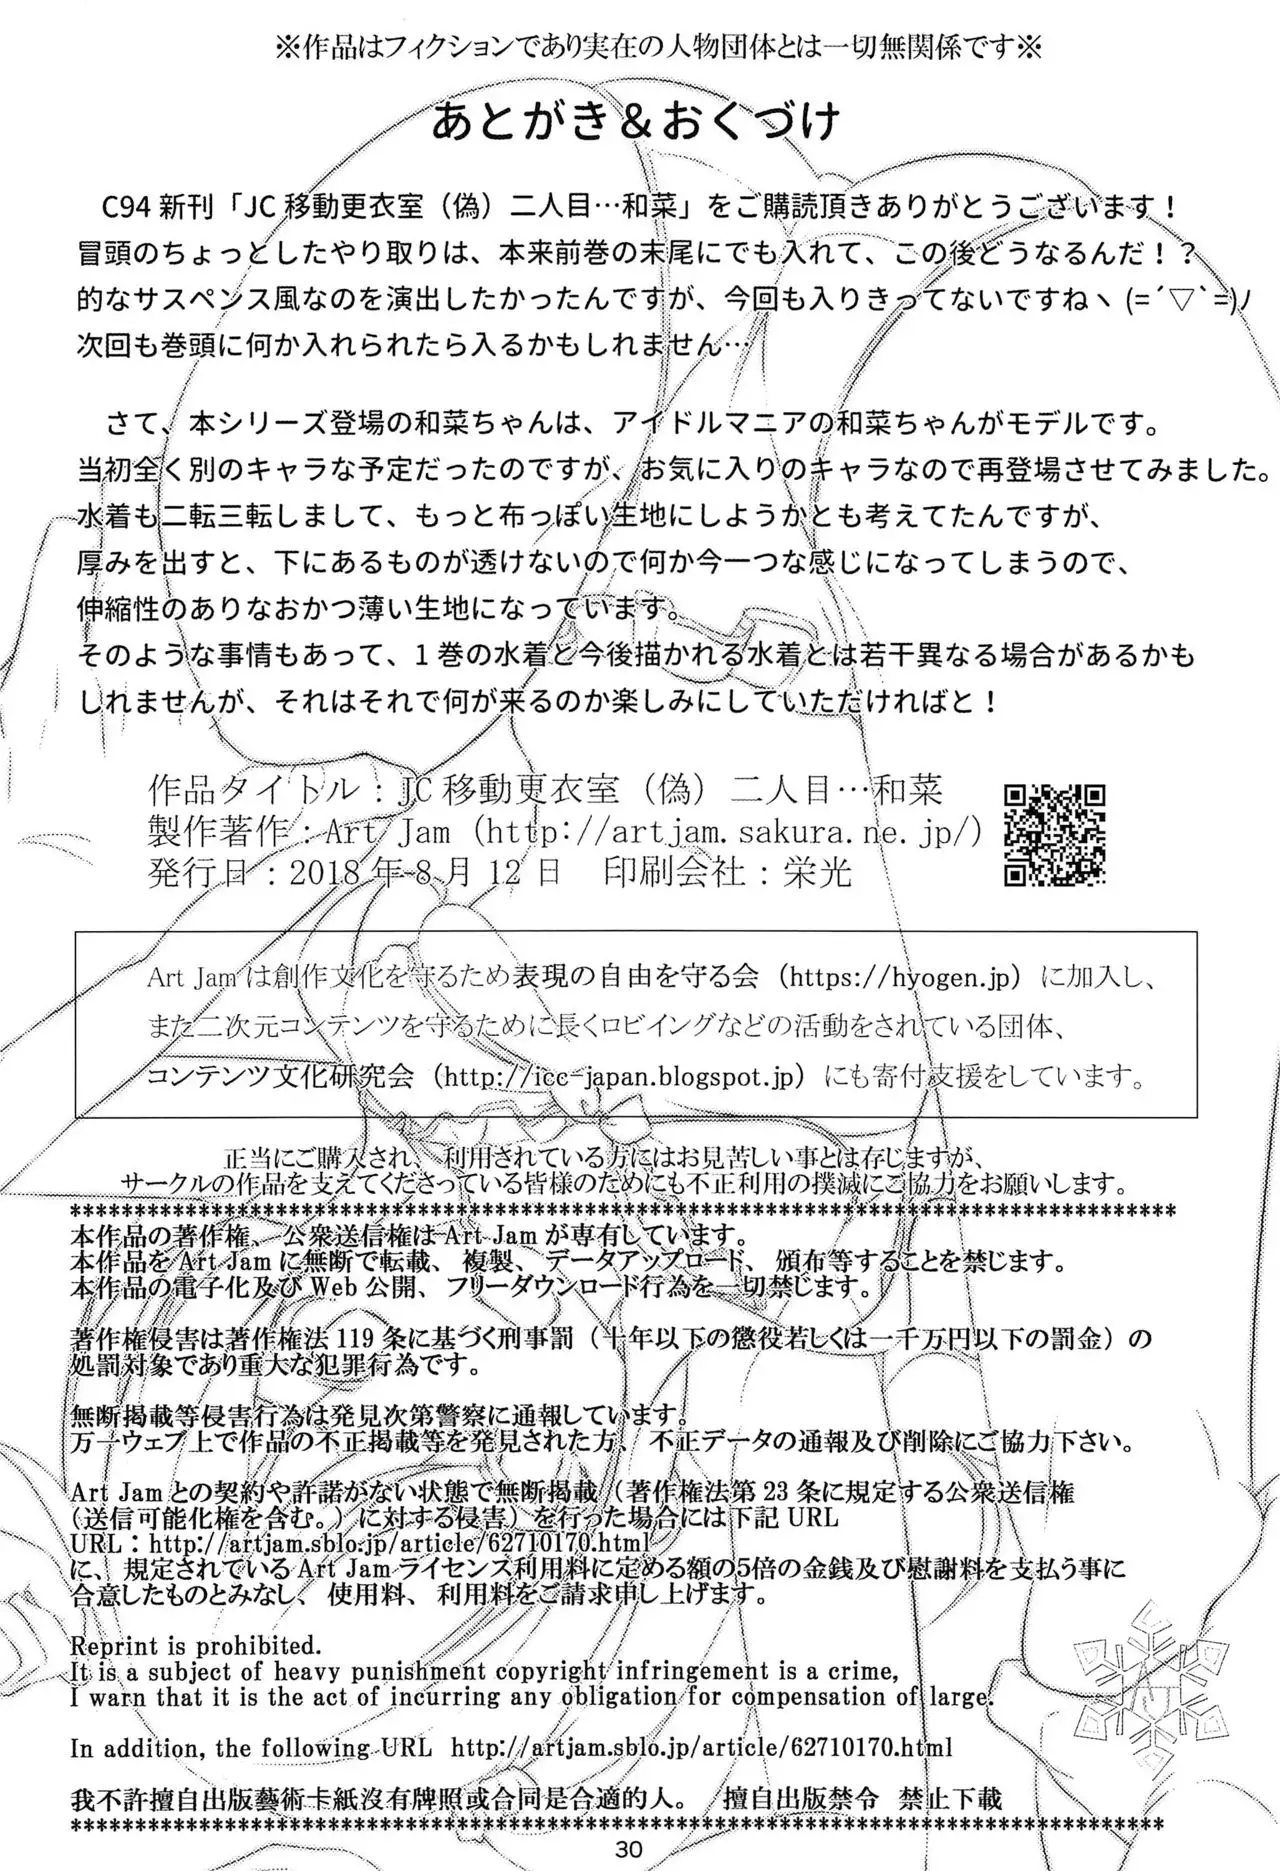 ※作品はフィクションであり実在の人物団体とは一切無関係です※
あとがき＆おくづけ
C94 新刊「JC 移動更衣室（偽）二人目…和菜」をご購読頂きありがとうございます！
冒頭のちょっとしたやり取りは、本来前巻の末尾にでも入れて、この後どうなるんだ！？
的なサスペンス風なのを演出したかったんですが、今回も入りきってないですねヽ(=´▽`=)ﾉ
次回も巻頭に何か入れられたら入るかもしれません…
さて、本シリーズ登場の和菜ちゃんは、アイドルマニアの和菜ちゃんがモデルです。
当初全く別のキャラな予定だったのですが、お気に入りのキャラなので再登場させてみました。
水着も二転三転しまして、もっと布っぽい生地にしようかとも考えてたんですが、
厚みを出すと、下にあるものが透けないので何か今一つな感じになってしまうので、
伸縮性のありなおかつ薄い生地になっています。
そのような事情もあって、1 巻の水着と今後描かれる水着とは若干異なる場合があるかも
しれませんが、それはそれで何が来るのか楽しみにしていただければと！
作品タイトル：JC 移動更衣室（偽）二人目…和菜
製作著作：Art Jam（http://artjam.sakura.ne.jp/）
発行日：2018 年 8 月 12 日　印刷会社：栄光
Art Jam は創作文化を守るため表現の自由を守る会（https://hyogen.jp）に加入し、
また二次元コンテンツを守るために長くロビイングなどの活動をされている団体、
コンテンツ文化研究会（http://icc-japan.blogspot.jp）にも寄付支援をしています。
正当にご購入され、利用されている方にはお見苦しい事とは存じますが、
サークルの作品を支えてくださっている皆様のためにも不正利用の撲滅にご協力をお願いします。
************************************************************************************
本作品の著作権、公衆送信権は Art Jam が専有しています。
本作品を Art Jam に無断で転載、複製、データアップロード、頒布等することを禁じます。
本作品の電子化及び Web 公開、フリーダウンロード行為を一切禁じます。
著作権侵害は著作権法 119 条に基づく刑事罰（十年以下の懲役若しくは一千万円以下の罰金）の
処罰対象であり重大な犯罪行為です。
無断掲載等侵害行為は発見次第警察に通報しています。
万一ウェブ上で作品の不正掲載等を発見された方、不正データの通報及び削除にご協力下さい。
Art Jam との契約や許諾がない状態で無断掲載（著作権法第 23 条に規定する公衆送信権
（送信可能化権を含む。）に対する侵害）を行った場合には下記 URL
URL：http://artjam.sblo.jp/article/62710170.html
に、規定されている Art Jam ライセンス利用料に定める額の5倍の金銭及び慰謝料を支払う事に
合意したものとみなし、使用料、利用料をご請求申し上げます。
Reprint is prohibited.
It is a subject of heavy punishment copyright infringement is a crime,
I warn that it is the act of incurring any obligation for compensation of large.
In addition, the following URL http://artjam.sblo.jp/article/62710170.html
我不許擅自出版藝術卡紙沒有牌照或合同是合適的人。　擅自出版禁令 禁止下載
************************************************************************************
30